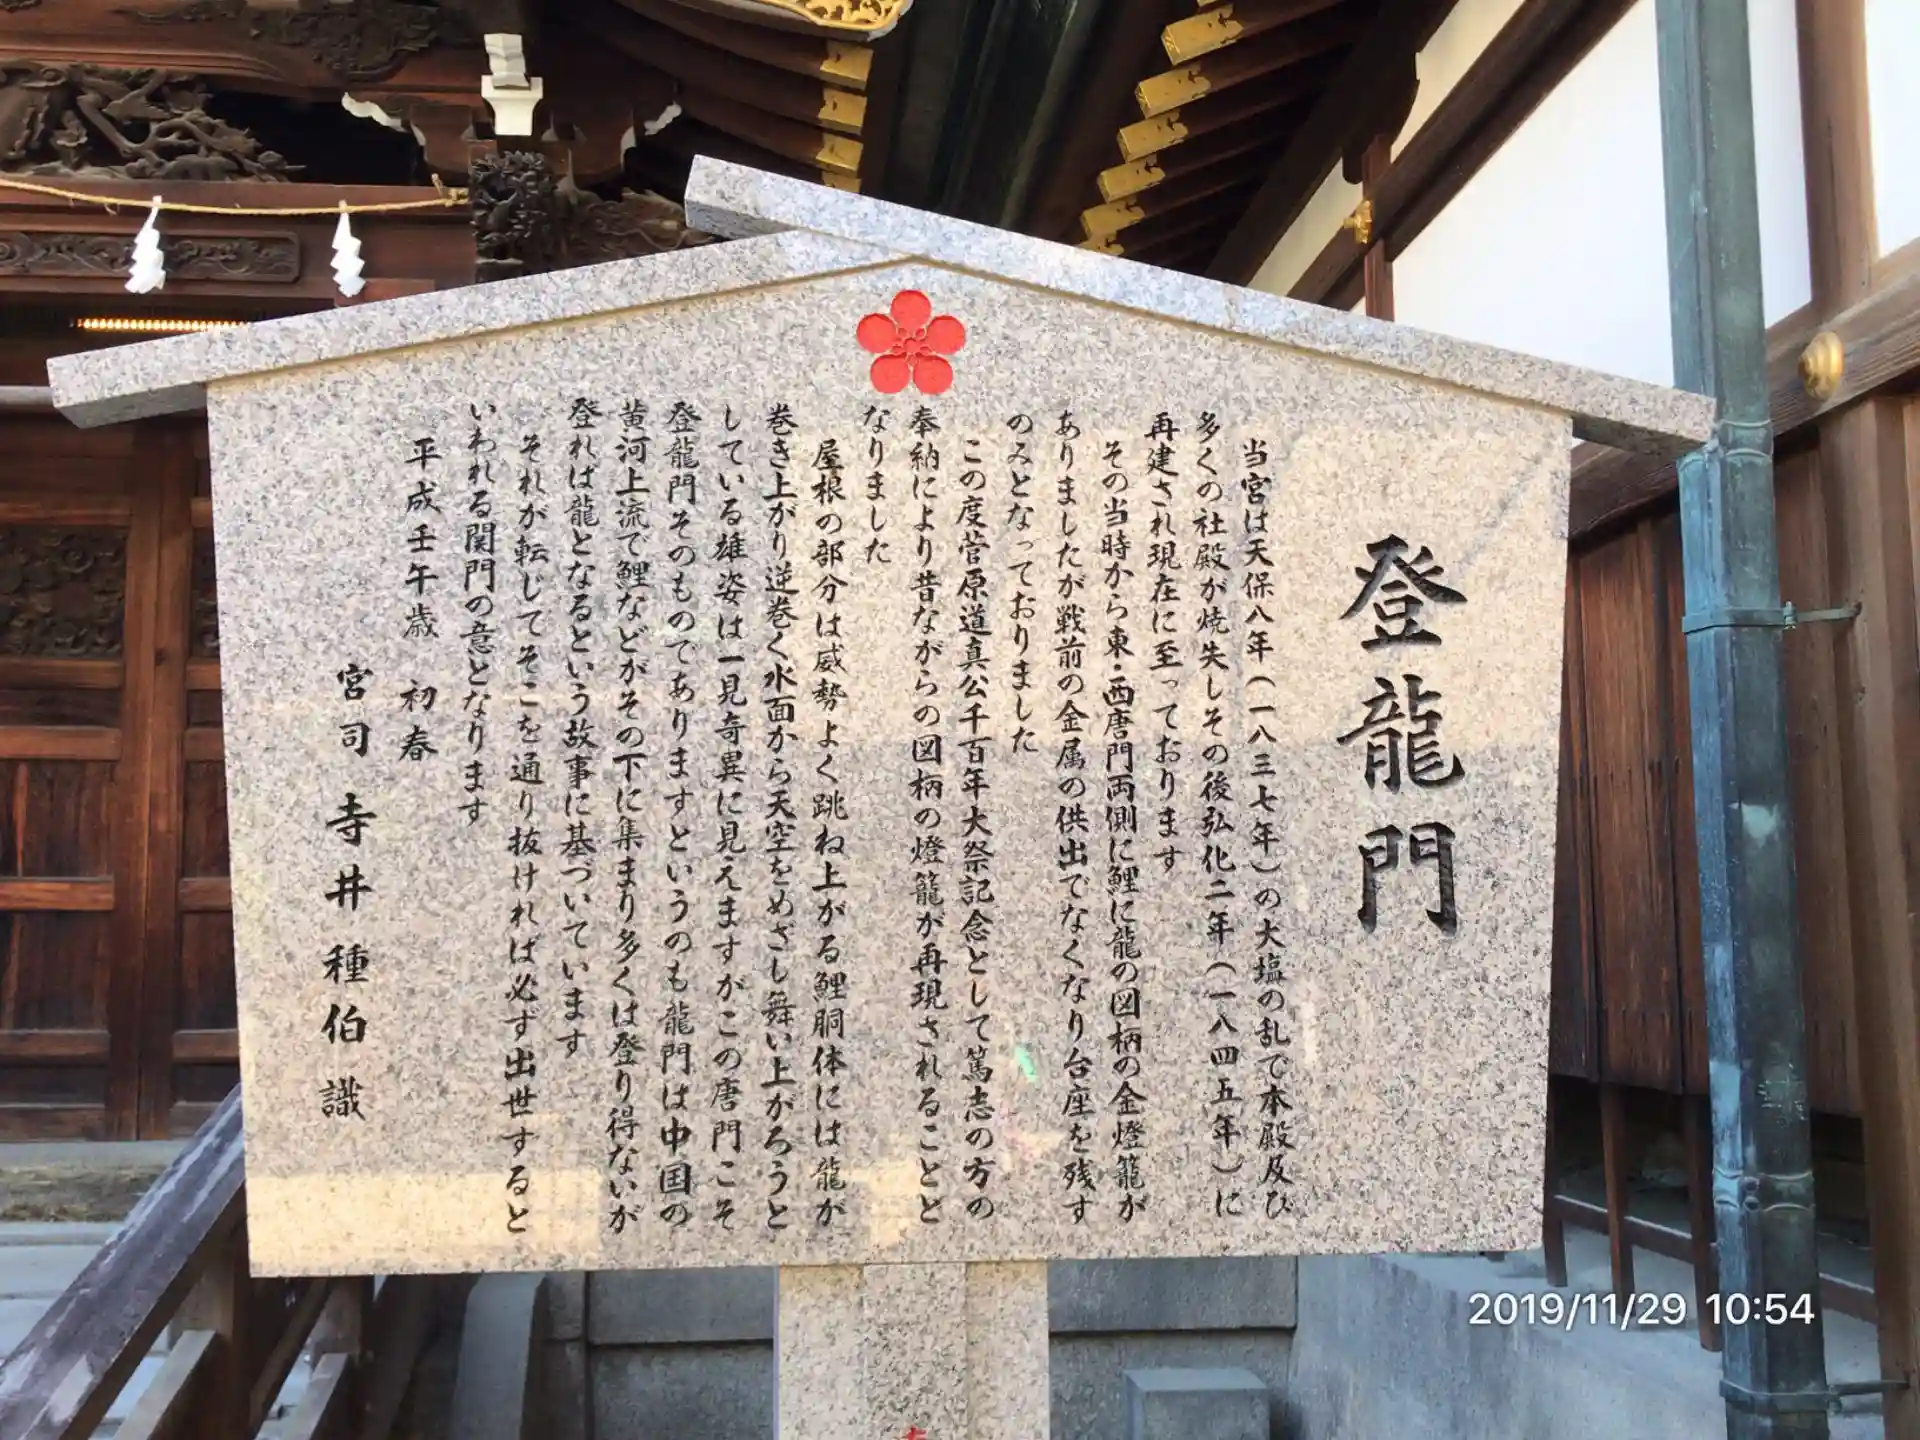 登龍門
当宮は天保八年(一八三七年)の大塩の乱で本殿及び
多くの社殿が焼失しその後弘化二年(一八四五年)に
再建され現在に至っております
その当時から東・西唐門両側に鯉に龍の図柄の金燈籠が
ありましたが戦前の金属の供出でなくなり台座を残す
のみとなっておりました
この度菅原道真公千百年大祭記念として篤志の方の
奉納により昔ながらの図柄の燈籠が再現されることと
なりました
屋根の部分は威勢よく跳ね上がる鯉胴体には龍が
巻き上がり逆巻く水面から天空をめざし舞い上がろうと
している雄姿は一見奇異に見えますがこの唐門こそ
登龍門そのものでありますというのも龍門は中国の
黄河上流で鯉などがその下に集まり多くは登り得ないが
登れば龍となるという故事に基づいています
それが転じてそこを通り抜ければ必ず出世すると
いわれる関門の意となります
平成壬午歳 初春
宮司 寺井種伯 識
2019/11/29 10:54